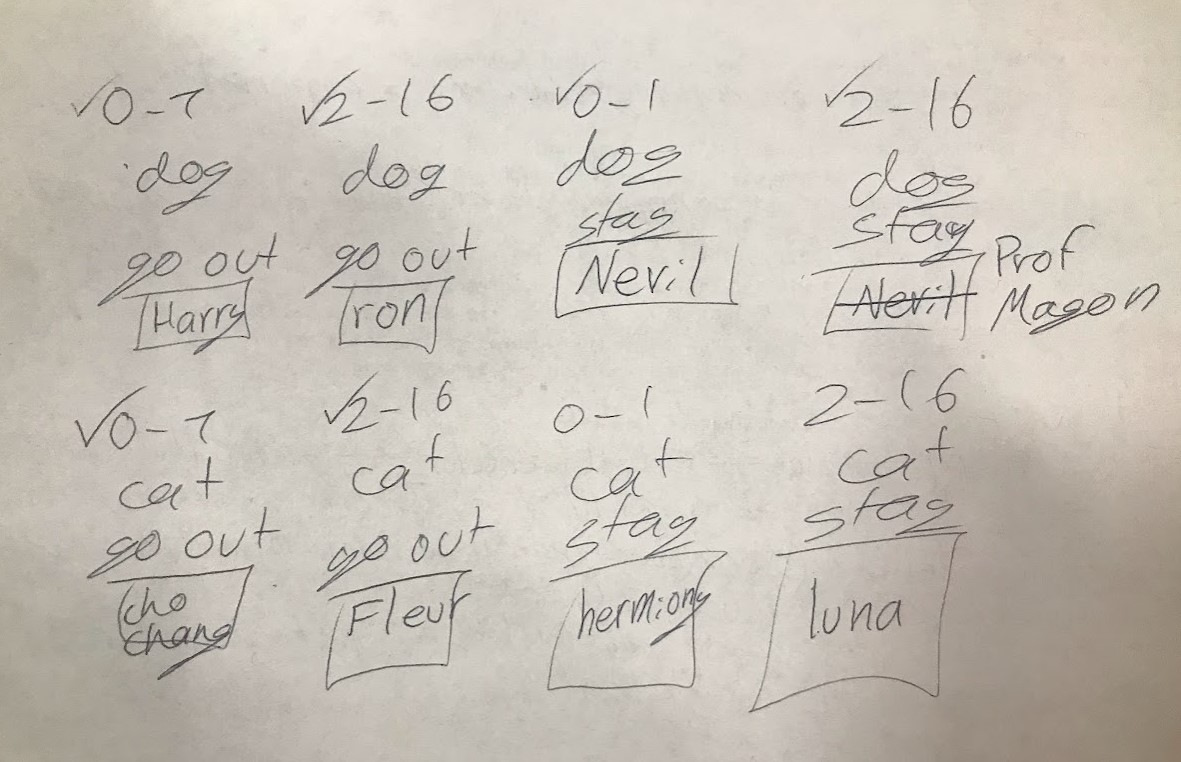 ✓0-7
dog
go out
Harry
✓2-16
dog
go out
ron
✓0-1
dog
stag
Nevil
✓2-16
dog
stag
Nevil
Prof
Magon
✓0-7
cat
go out
cho
chang
✓2-16
cat
go out
Fleur
0-1
cat
stag
hermiony
2-16
cat
stag
luna